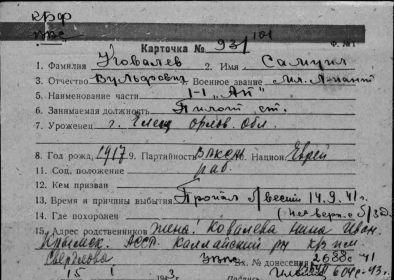 КБФ
ВВС
Карточка № 93/101 Ф. №1
1. Фамилия Ковалев 2. Имя Самуил
3. Отчество Вульфович Военное звание Мл. л-нант
5. Наименование части 1-й "АП"
6. Занимаемая должность Пилот ст.
7. Уроженец г. Елец Орлов. Обл.
8. Год рожд. 1917 9. Партийность ВЛКСМ 10. Национ. Еврей
11. Соц. положение раб.
12. Кем призван
13. Время и причины выбытия Пропал б/вести 14.9.41 г.
14. Где похоронен (не верн. с б/зд.
15. Адрес родственников жена: Ковалева Нина Иван.
Сергеева Вх. № донесения 2688с-41
15 1 3 г.